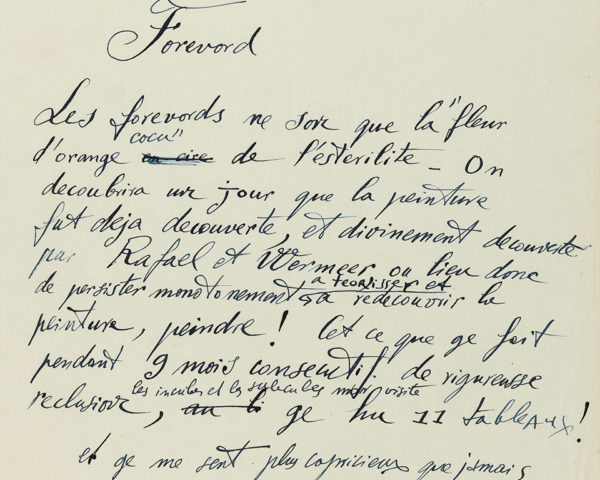 Forevord
Les forevords ne son que la "fleur
cocu"
d'orange en cire de l'esterilite - On
decoubrira un jour que la peinture
fut deja decouverte, et divinement decouverte
par Rafael et Wermeer ou lieu donc
a teorisser et
de persister monotonement sa redecouvrir la
peinture, peindre! Cet ce que ge fait
pendant 9 mois consecutif. de rigureusse
les incubes et les sucules m'on visite
reclusion, ge hu 11 tableaux!
et ge me sent plus capricieux que jamais